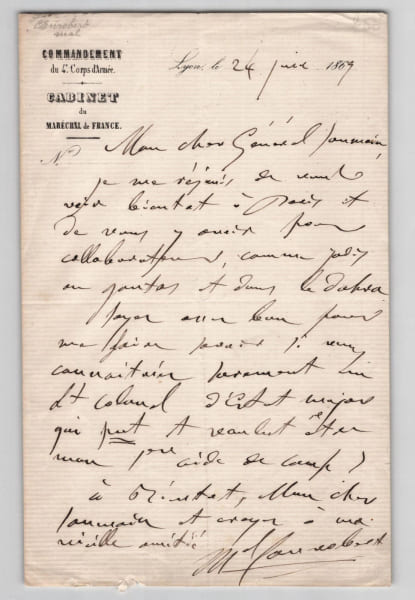 Canrobert
mal
COMMANDEMENT
du 4e. Corps d'Armée.
CABINET
du
MARÉCHAL de FRANCE.
Lyon, le 24 juin 1869
No
Mon cher Général Soumain,
je me réjouis de vous
voir bientôt à Paris et
de vous y avoir pour
collaborateur, comme jadis
au et dans le Dahra
soyez assez bon pour
me faire savoir si vous
connaitriez un
Lt colonel d'Etat major
qui put et voulut être
mon 1er aide de camp ?
à bientot, Mon cher
Soumain et croyez à ma
vieille amitié
Mal Canrobert